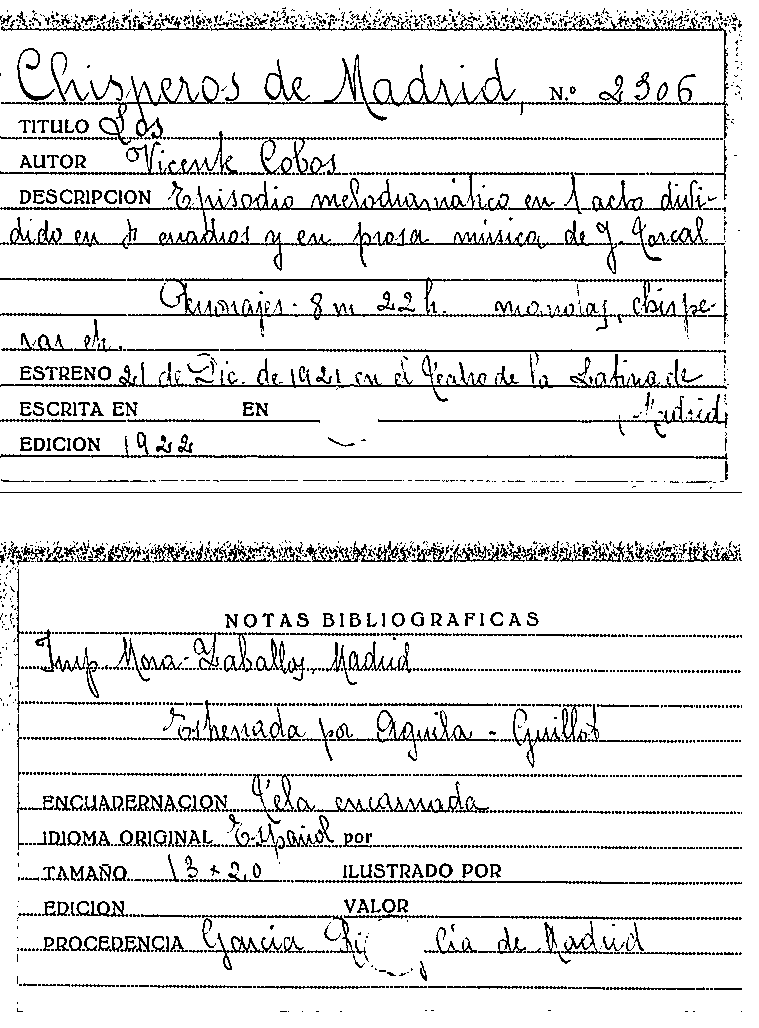 Chisperos de Madrid, N.º 2306
TITULO Los
AUTOR Vicente Cobos
DESCRIPCION Episodio melodramático en 1 acto divi-
dido en cuadros y en prosa música de J.
Personajes: 8 m 22 h. manolas, chispe-
ras etc.
ESTRENO 21 de Dic. de 1921 en el Teatro de la Latina de
ESCRITA EN EN Madrid
EDICION 1922
NOTAS BIBLIOGRAFICAS
Imp Mora-Zaballos. Madrid
Estrenada por Aguila - Guillot
ENCUADERNACION Tela encarnada
IDIOMA ORIGINAL Español por
TAMAÑO 13 x 20 ILUSTRADO POR
EDICION VALOR
PROCEDENCIA Garcia cia de Madrid